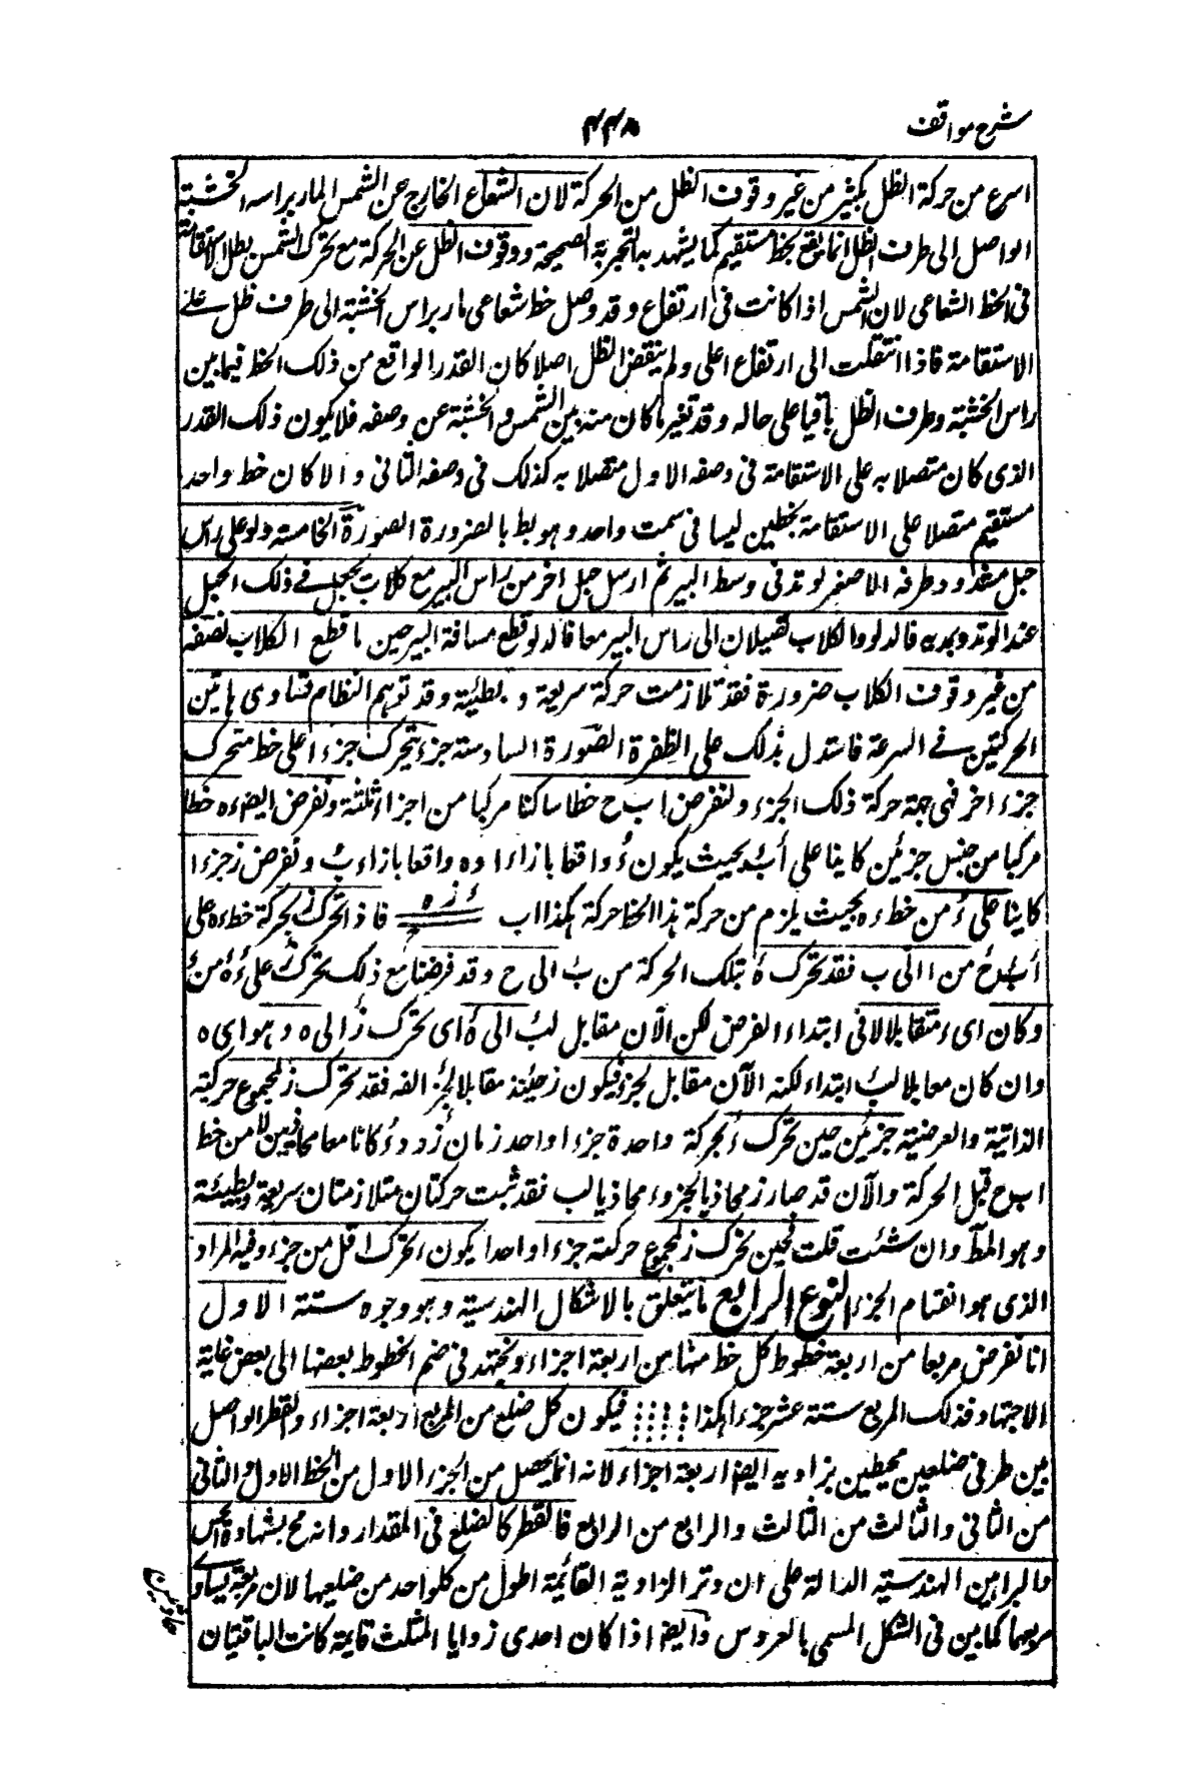 شرح مواقف
۴۴۸
اسرع من حركة الظل بكثير من غير وقوف الظل من الحركة لان الشعاع الخارج عن الشمس المار براس الخشبة
الواصل الى طرف الظل انما يقع بخط مستقيم كما يشهد به التجربة الصحيحة ووقوف الظل عن الحركة مع تحرك الشمس يبطل الاستقامة
فى الخط الشعاعى لان الشمس اذا كانت فى ارتفاع وقد وصل خط شعاعى مار براس الخشبة الى طرف ظل على
الاستقامة فاذا انتقلت الى ارتفاع اعلى ولم ينتقض الظل اصلا كان القدر الواقع من ذلك الخط فيما بين
راس الخشبة وطرف الظل باقيا على حاله وقد تغير ما كان منه بين الشمس والخشبة عن وصفه فلا يكون ذلك القدر
الذى كان متصلا به على الاستقامة فى وصفه الاول متصلا به كذلك فى وصفه الثانى والا كان خط واحد
مستقيم متصلا على الاستقامة بخطين ليسا فى سمت واحد وهو بط بالضرورة الصورة الخامسة دلو على راس
حبل مشدود طرفه الاصغر لوتد فى وسط البير ثم ارسل حبل اخر من راس البير مع كلاب يجعل فى ذلك الحبل
عند الوتد ويمد به فالدلو والكلاب تصيلان الى راس البير معا فالدلو قطع مسافة البير حين ما قطع الكلاب نصفه
من غير وقوف الكلاب ضرورة فقد تلازمت حركة سريعة وبطيئة وقد توهم النظام تساوى هاتين
الحركتين فى السرعة فاستدل بذلك على الطفرة الصورة السادسة جزء يتحرك جزءا على خط متحرك
جزء اخر فى جهة حركة ذلك الجزء ولنفرض ا ب ح خطا ساكنا مركبا من اجزاء ثلثة ونفرض ايضا ء ه خطا
مركبا من جنس جزئين كاينا على اب بحيث يكون ء واقعا بازاء ا و ه واقعا بازاء ب ونفرض ز جزءا
كاينا على ء من خط ء ه بحيث يلزم من حركة هذا الخط حركة هكذا اب ء ز ه ح فاذا تحرك بحركة خط ء ه على
اب ح من ا الى ب فقد تحرك ه بتلك الحركة من ب الى ح وقد فرضنا مع ذلك تحرك على ء ه من ء
وكان اى ء متقابلا لا فى ابتداء الفرض لكن الآن مقابل لب الى ه اى تحرك ز الى ه وهو اى ه
وان كان مقابلا لب ابتداء لكنه الآن مقابل لجزء فيكون ز حينئذ مقابلا لجزء الفه فقد تحرك ز بمجموع حركتيه
الذاتية والعرضية جزئين حين تحرك ء بحركة واحدة جزءا واحد زمان ز و ء كانا معا محاذيين لا من خط
اب ح قبل الحركة والآن قد صار ز محاذيا لجزء و ء محاذيا لب فقد ثبت حركتان متلازمتان سريعة وبطيئة
وهو المط وان شئت قلت فحين تحرك ز بمجموع حركته جزءا واحدا يكون ء تحرك اقل من جزء وفيه المراد
الذى هو انقسام الجزء النوع الرابع ما يتعلق بالاشكال الهندسية وهو وجوه ستة الاول
انا نفرض مربعا من اربعة خطوط كل خط منها من اربعة اجزاء ونجتهد فى ضم الخطوط بعضها الى بعض غاية
الاجتهاد فذلك المربع ستة عشر جزءا هكذا فيكون كل ضلع من المربع اربعة اجزاء والقطر الواصل
بين طرفى ضلعين محيطين بزاوية ايضا اربعة اجزاء لانه انما يحصل من الجزء الاول من الخط الاول والثانى
من الثانى والثالث من الثالث والرابع من الرابع فالقطر كالضلع فى المقدار وانه مح بشهادة الحس
والبراهين الهندسية الدالة على ان وتر الزاوية القائمة اطول من كلواحد من ضلعيها لان مربعه يساوى
مربعيهما كما بين فى الشكل المسمى بالعروس وايضا اذا كان احدى زوايا المثلث قايمة كانت الباقيتان